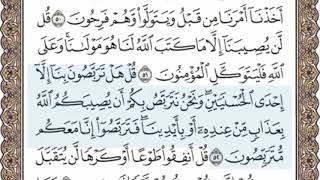 أَخَذْنَآ أَمْرَنَا مِن قَبْلُ وَيَتَوَلَّوا۟ وَّهُمْ فَرِحُونَ ٥٠ قُل
لَّن يُصِيبَنَآ إِلَّا مَا كَتَبَ ٱللَّهُ لَنَا هُوَ مَوْلَىٰنَا ۚ وَعَلَى
ٱللَّهِ فَلْيَتَوَكَّلِ ٱلْمُؤْمِنُونَ ٥١ قُلْ هَلْ تَرَبَّصُونَ بِنَآ إِلَّآ
إِحْدَى ٱلْحُسْنَيَيْنِ ۖ وَنَحْنُ نَتَرَبَّصُ بِكُمْ أَن يُصِيبَكُمُ ٱللَّهُ
بِعَذَابٍ مِّنْ عِندِهِۦٓ أَوْ بِأَيْدِينَا ۖ فَتَرَبَّصُوٓا۟ إِنَّا مَعَكُم
مُّتَرَبِّصُونَ ٥٢ قُلْ أَنفِقُوا۟ طَوْعًا أَوْ كَرْهًا لَّن يُتَقَبَّلَ